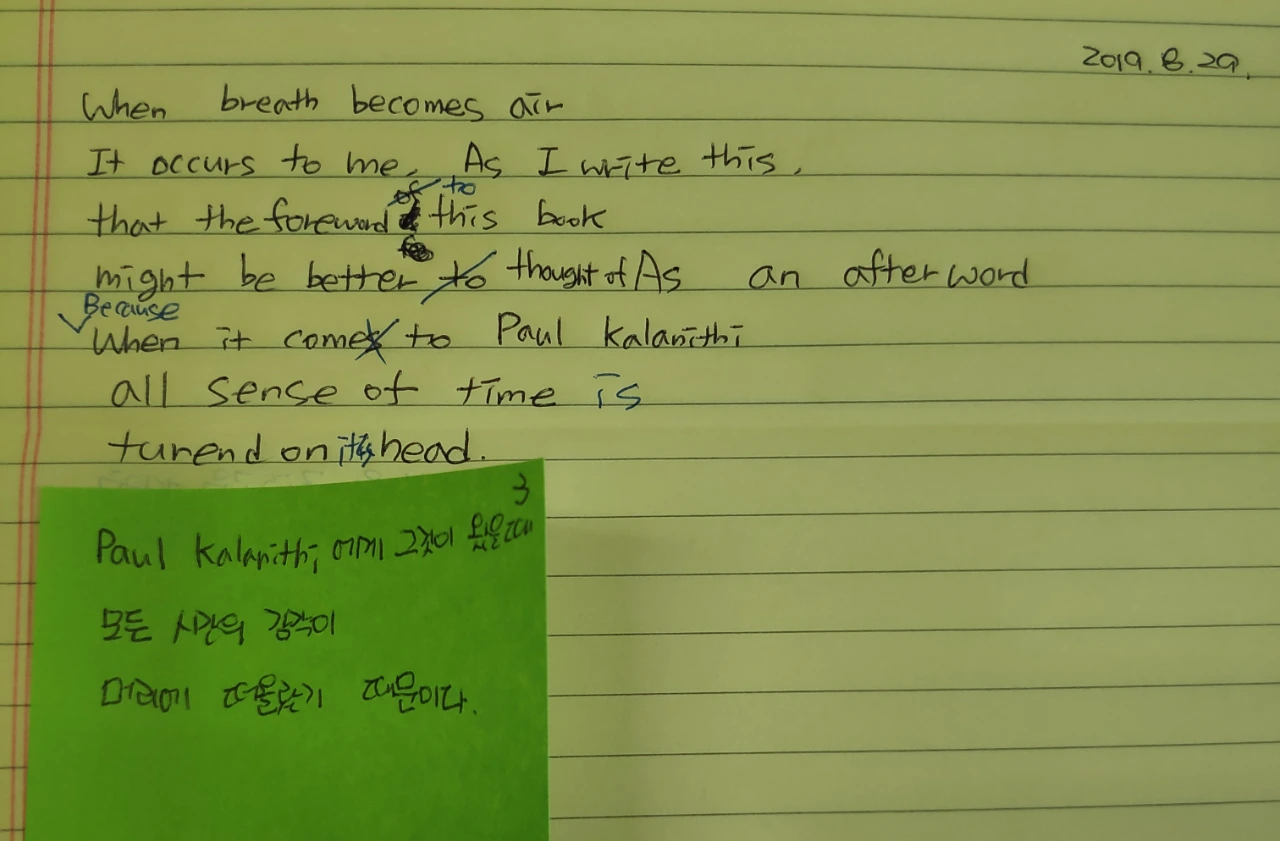 2019. 8. 29.
When breath becomes air
It occurs to me, As I write this,
to
that the foreword this book
might be better to thought of As an afterword
Because
When it comes to Paul Kalanithi
all sense of time is
turend on its head.
3
Paul Kalanithi 에게 그것이 왔을때
모든 시간의 감각이
머리에 떠올랐기 때문이다.